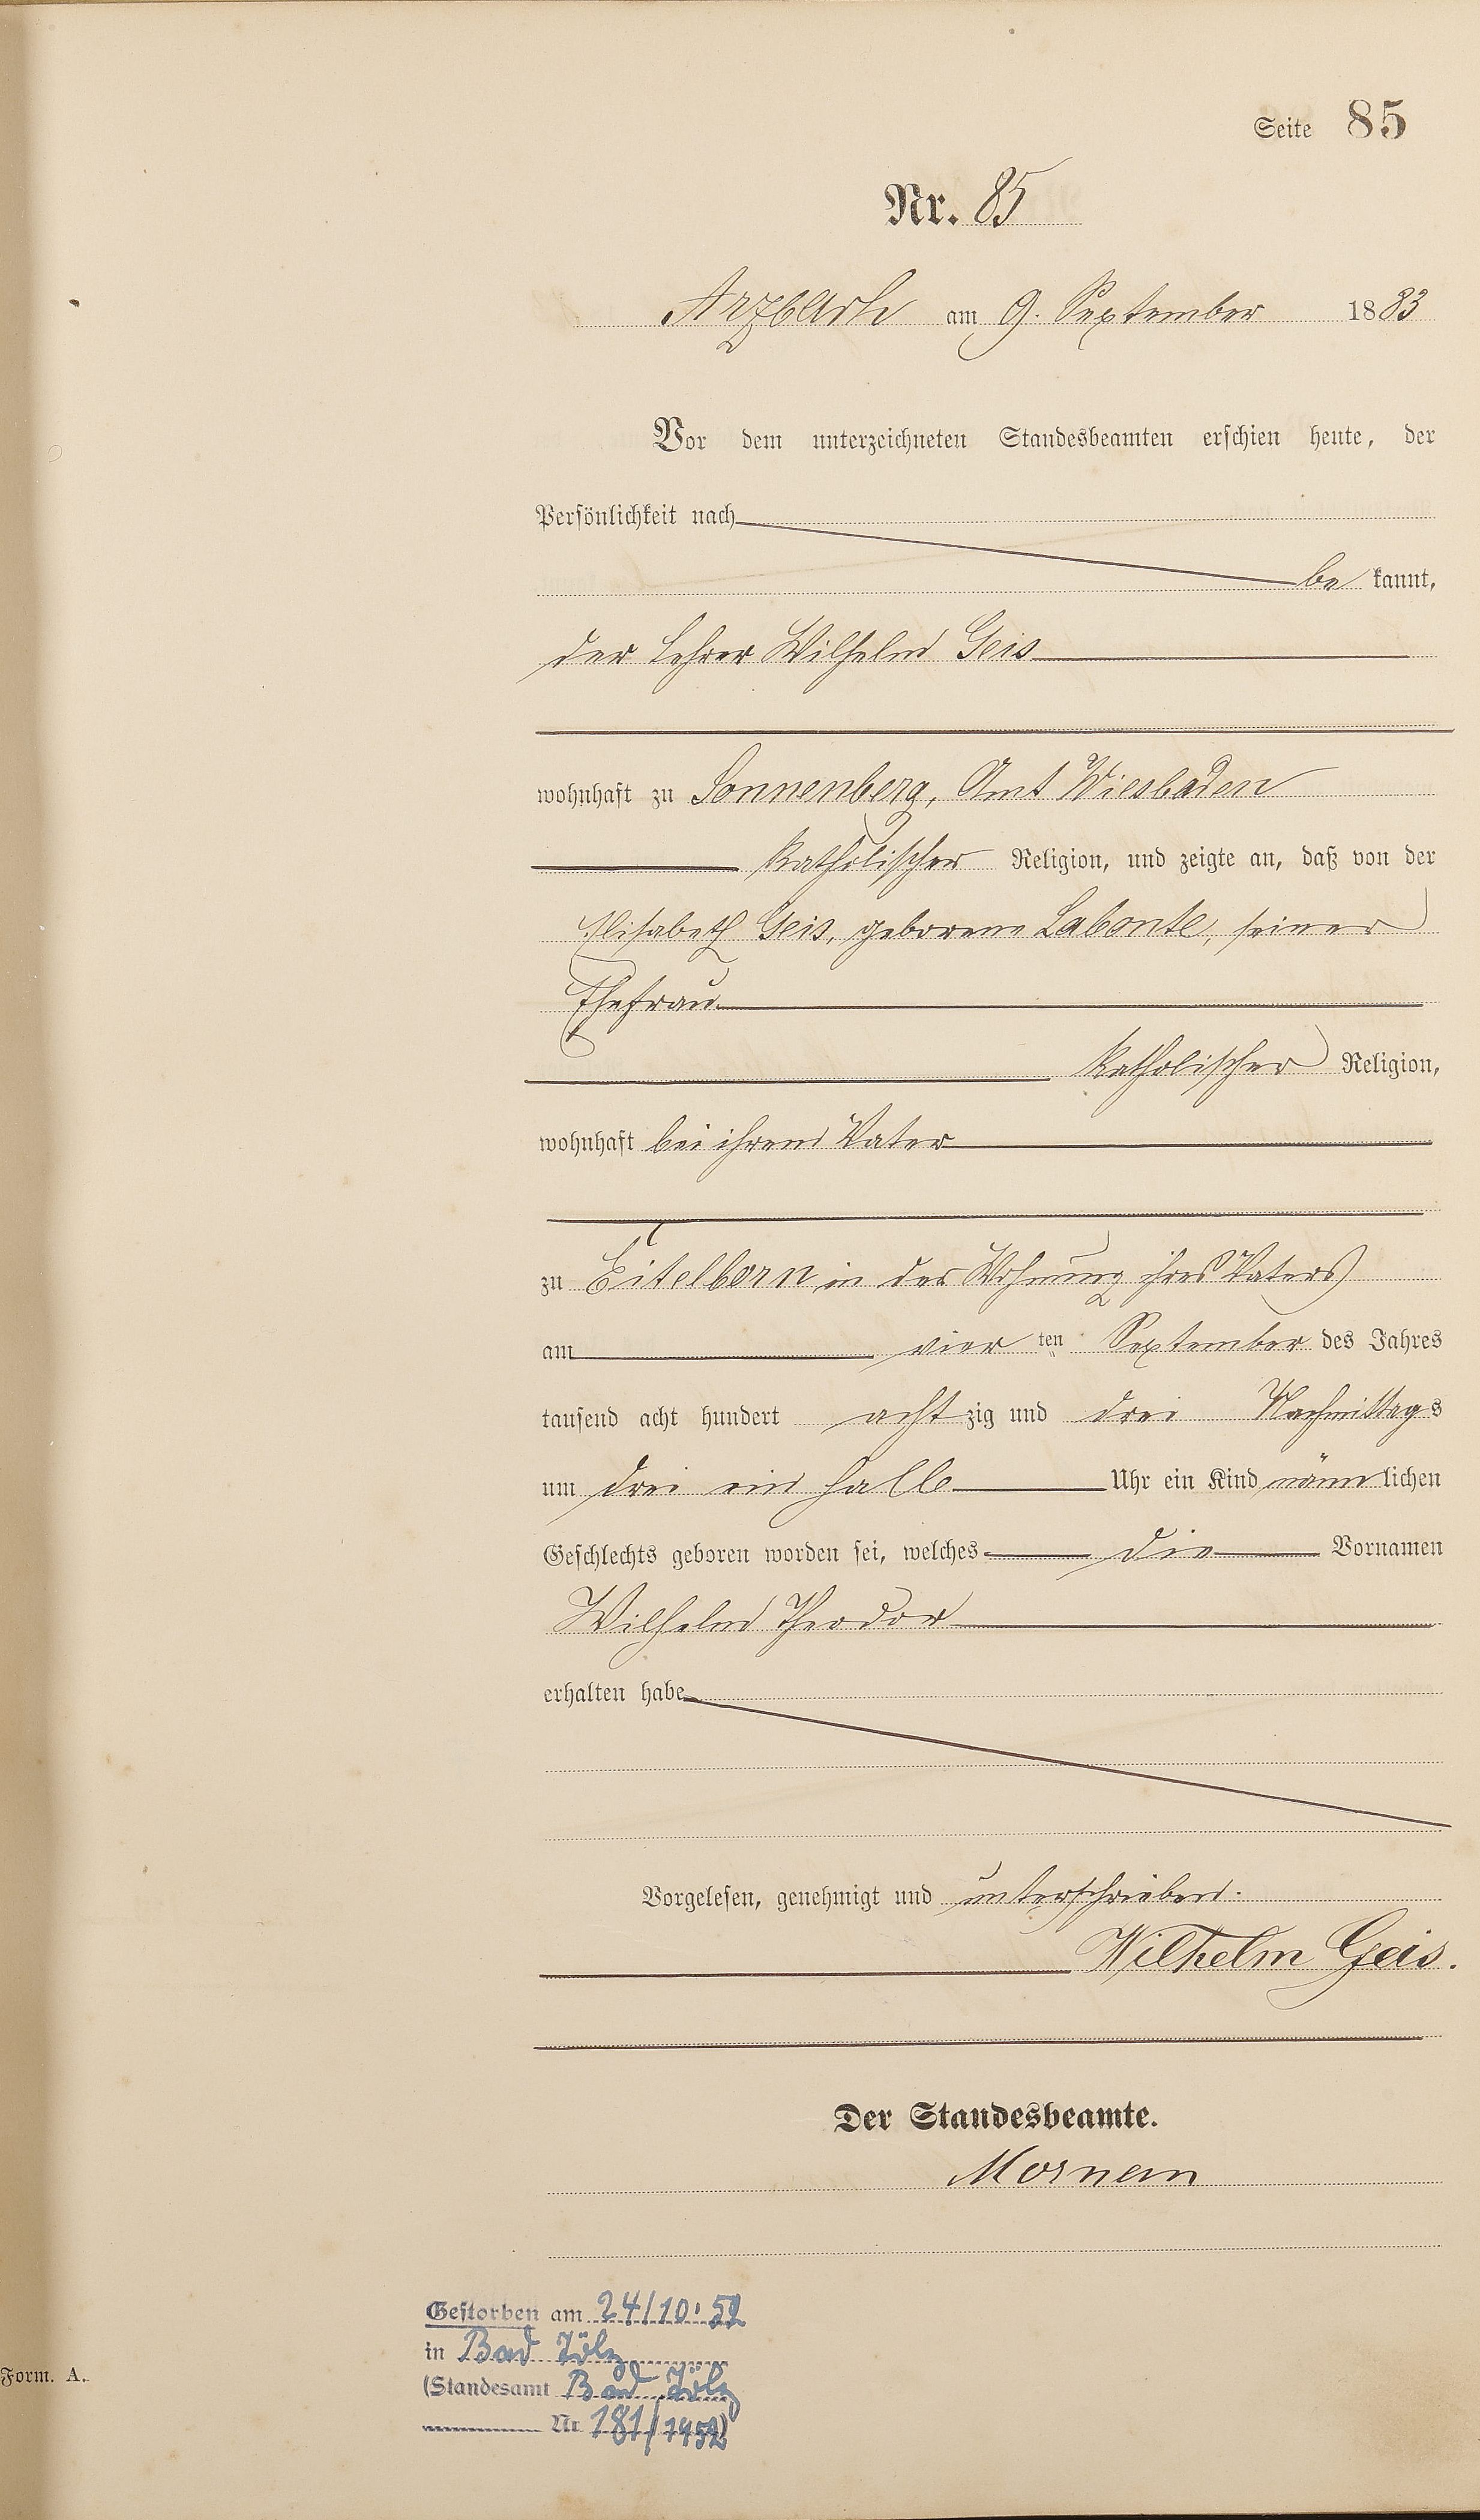 Seite 85
Nr. 85
Arzbach am 9. September 1883
Vor dem unterzeichneten Standesbeamten erschien heute, der
Persönlichkeit nach
be kannt,
der Lehrer Wilhelm Geis
wohnhaft zu Sonnenberg, Amt Wiesbaden
katholischer Religion, und zeigte an, daß von der
Elisabeth Geis, geborene Labonte, seiner
Ehefrau
katholischer Religion,
wohnhaft bei ihrem Vater
zu Eitelborn in der Wohnung ihres Vaters
am vier ten September des Jahres
tausend acht hundert acht zig und drei Nachmittags
um drei ein halb Uhr ein Kind männ lichen
Geschlechts geboren worden sei, welches die Vornamen
Wilhelm Theodor
erhalten habe
Vorgelesen, genehmigt und unterschrieben.
Wilhelm Geis.
Der Standesbeamte.
Gestorben am 24/10.52
in Bad Tölz
(Standesamt Bad Tölz
Nr 181/1952)
Form. A.